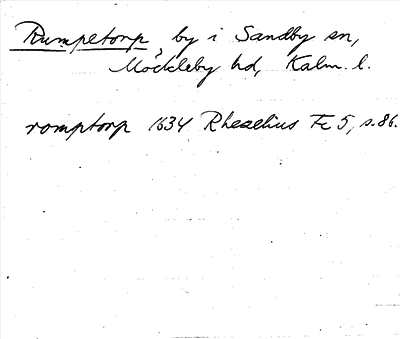 Rumpetorp, by i Sandby sn,
Möckleby hd, Kalm. l.
romptorp 1634 Rhezelius Fc 5, s. 86.